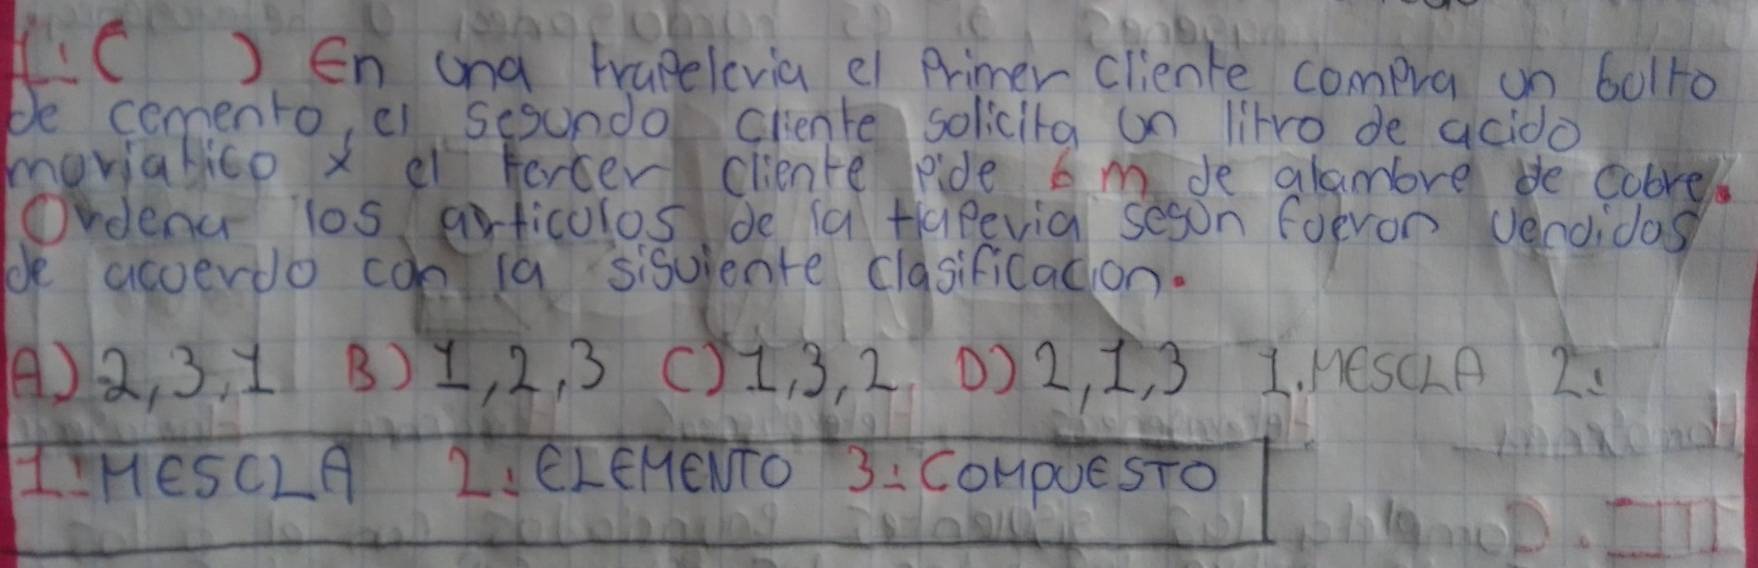 1.- ( ) En una trapeleria el Primer cliente compra un bulto
de cemento, el segundo cliente solicita un litro de acido
moriatico y el tercer cliente pide 6 m de alambre de cobre.
Ordena los articulos de la tlaperia segun fueron vendidos
de acuerdo con la siguiente clasificacion.
A) 2,3,1 B) 1,2,3 C) 1,3,2 D) 2,1,3 1. MESCLA 2.
1.- MESCLA 2.- ELEMENTO 3.- COMPUESTO